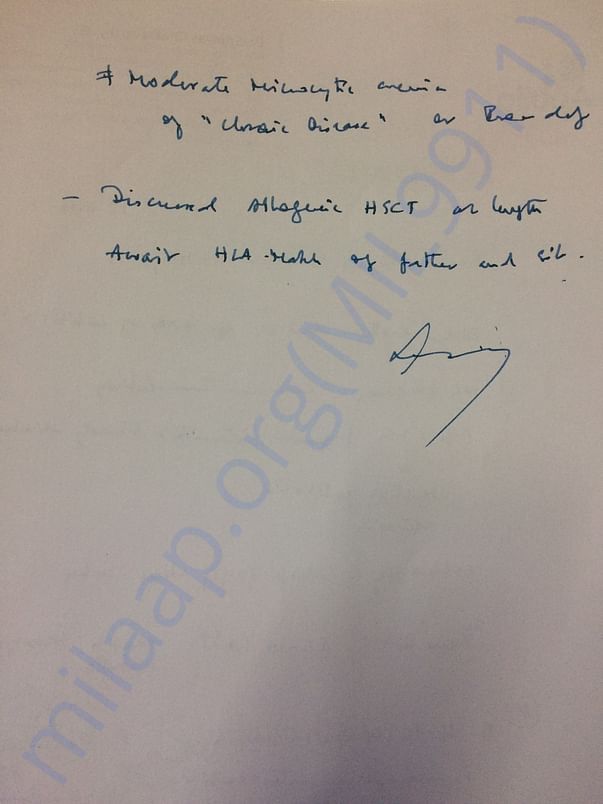 # Moderate Microcytic anemia
of "Chronic Disease" or Iron def
- Discussed Allogeneic HSCT at length
Await HLA-Match of father and sib.
milaap.org(MIL9911)